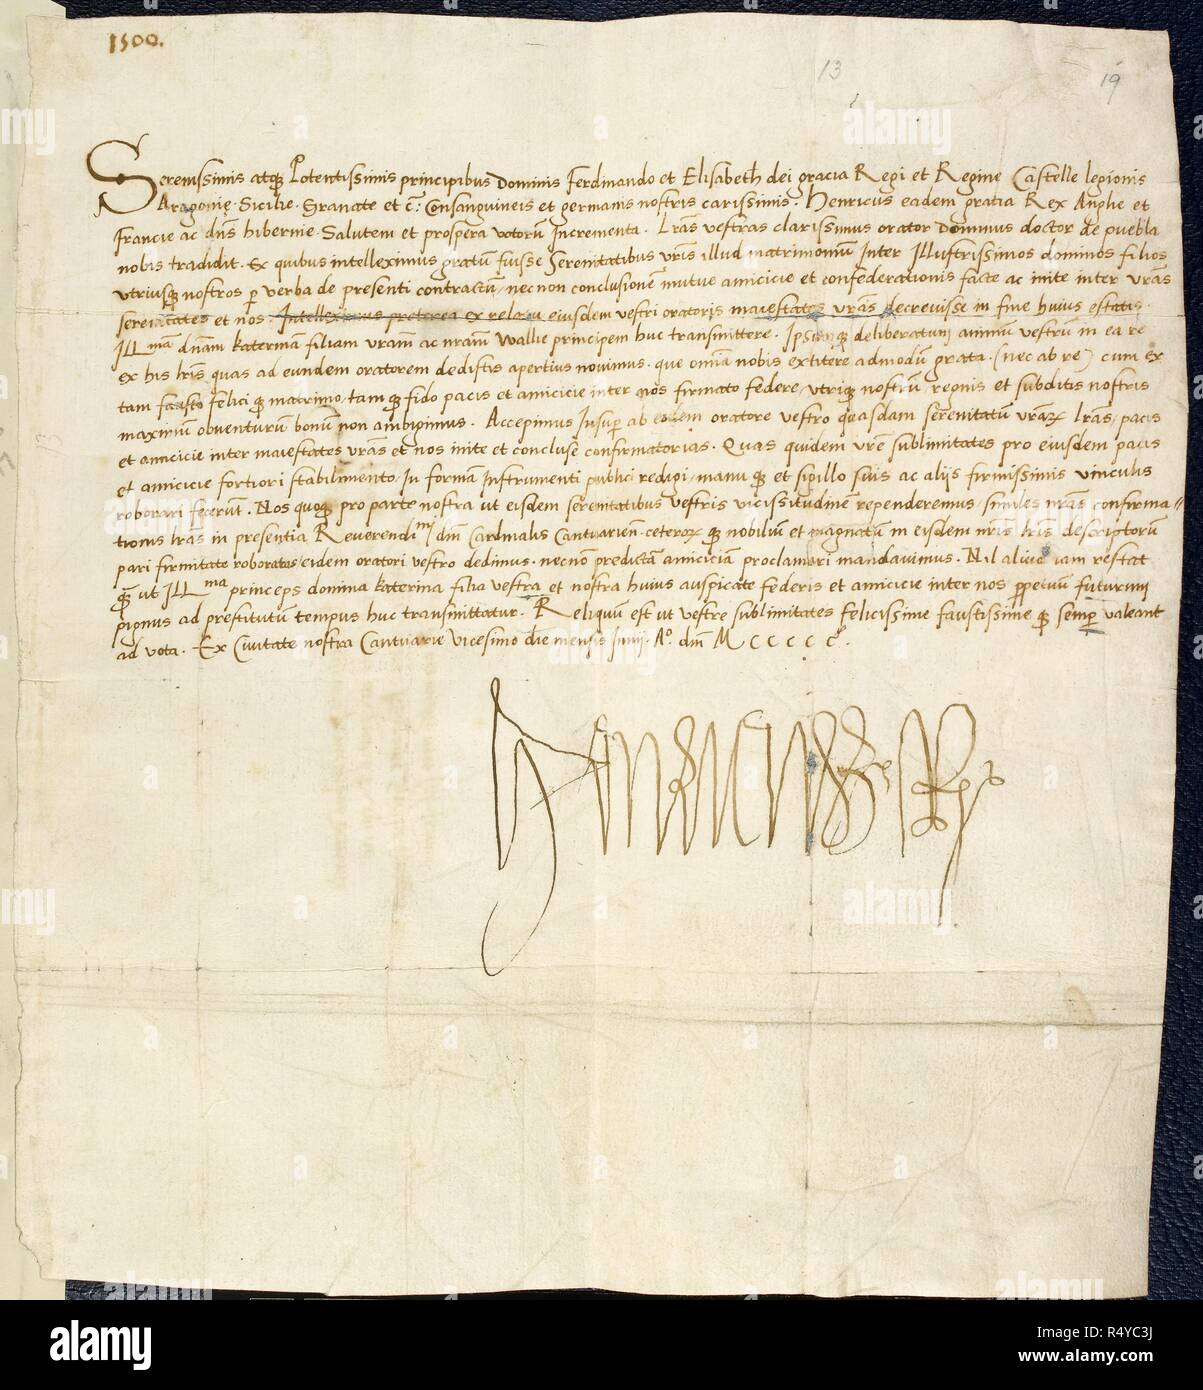 1500.
13
19
Serenissimis atq3 Potentissimis principibus Dominis Ferdinando et Elisabeth dei gracia Regi et Regine Castelle legionis
Aragonię. Sicilie. Granate et c̃: Consanguineis et germanis nostris carissimis. Henricus eadem gratia Rex Anglie et
Francie ac dñs hibernie. Salutem et prospera votorũ Incrementa. Lr̃as vestras clarissimus orator Dominus doctor de puebla
nobis tradidit. Ex quibus intelleximus gratũ fuisse Serenitatibus vr̃is illud matrimoniũm Inter Illustrissimos dominos filios
vtriusq3 nostros p verba de presenti contractũ, necnon conclusionẽ mutue amicicie et confederationis facte ac inite inter vr̃as
sereniatates et nos. Intelleximus preterea ex relatu eiusdem vestri oratoris maiestates vr̃as decreuisse in fine huius estatis.
Ill.ma dñam Katerinãm filiam vr̃am ac nr̃am Wallie principem huc transmittere. Ipsumq3 deliberatum animũm vestrũm in ea re
ex his lr̃is quas ad eundem oratorem dedistis apertius nouimus. que omnĩa nobis extitere admodũm grata. (nec ab re) cum ex
tam fausto felici q3 matrimo, tam q3 fido pacis et amicicie inter nos firmato federe, vtriq3 nostrũm, regnis et subditis nostris
maximũm obuenturũm bonũm non ambigimus. Accepimus Insup ab eodem oratore vestro quasdam serenitatũm vr̃arꝝ lr̃as, pacis
et amicicie inter maiestates vr̃as et nos inite et conclusẽ confirmatorias. Quas quidem vr̃e sublimitates pro eiusdem pacis
et amicicie fortiori stabilimento. In formã Instrumenti publici redigi, manu q3 et sigillo suis ac alijs firmissimis vinculis
roborari fecerũt. Nos quoq3 pro parte nostra ut eisdem serenitatibus vestris vicissitudinẽm rependeremus, similes nr̃as confirma=
tionis lr̃as in presentia Reuerendi.mi dñi Cardinalis Cantuarieñ. ceterorꝝ q3 nobiliũm et magnatũm in eisdem nr̃is lr̃is descriptorũm
pari firmitate roboratas, eidem oratori vestro dedimus. necnõ predictã amiciciãm proclamari mandauimus. Nil aliud iam restat
q3 ut Ill.ma princeps domina Katerina filia vestra et nostra huius auspicate federis et amicicie inter nos ppetuũm futurũm
pignus ad prestitutũm tempus huc transmittatur. Reliquũm est ut vestre sublimitates felicissime faustissime q3 semp valeant
ad vota. Ex Ciuitate nostra Cantuarie Vicesimo die mensis Iunij. Ao. dñi M CCCCC o.
Henricus Rex
alamy
Image ID: R4YC3J
www.alamy.com